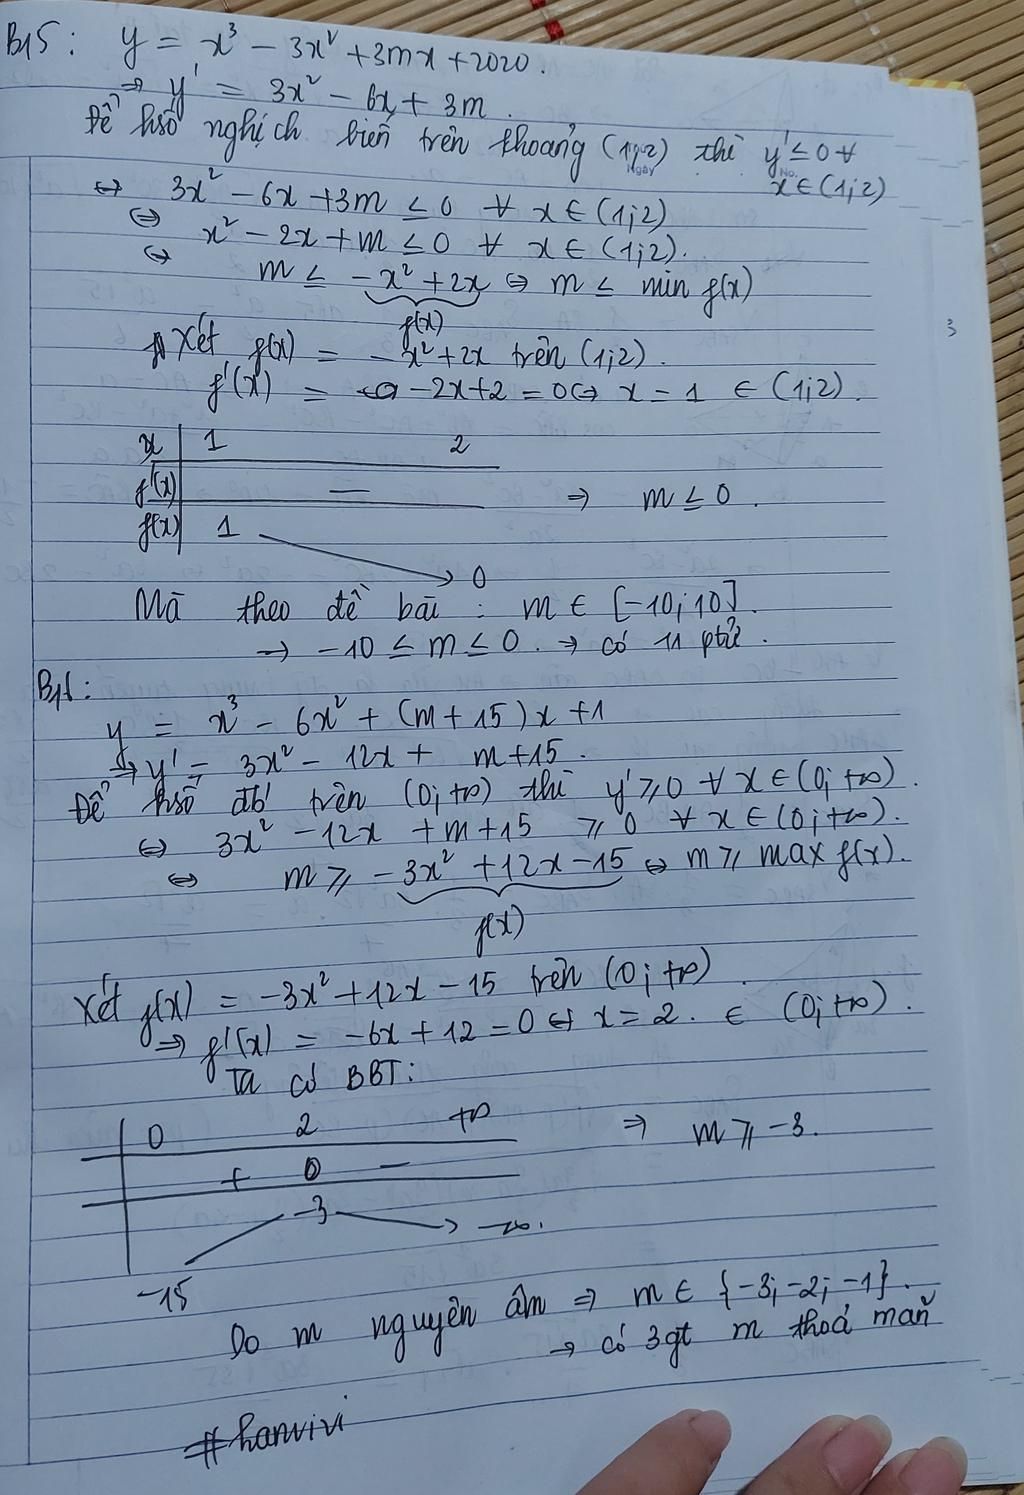 B15: y = x³ - 3x² + 3mx + 2020.
⇒ y' = 3x² - 6x + 3m.
Để hsố nghịch biến trên khoảng (1;2) thì y' ≤ 0 ∀
Ngày No.
x ∈ (1;2)
⇔ 3x² - 6x + 3m ≤ 0 ∀ x ∈ (1;2)
⇔ x² - 2x + m ≤ 0 ∀ x ∈ (1;2).
⇔ m ≤ -x² + 2x ⇔ m ≤ min f(x)
f(x)
Xét f(x) = -x² + 2x trên (1;2).
f'(x) = -2x + 2 = 0 ⇔ x = 1 ∈ (1;2).
x 1 2
f'(x) — ⇒ m ≤ 0.
f(x) 1
0
Mà theo đề bài: m ∈ [-10;10].
→ -10 ≤ m ≤ 0. → có 11 ptử.
B16:
y = x³ - 6x² + (m + 15)x + 1
⇒ y' = 3x² - 12x + m + 15.
Để hsố đb trên (0; +∞) thì y' ≥ 0 ∀ x ∈ (0; +∞).
⇔ 3x² - 12x + m + 15 ≥ 0 ∀ x ∈ (0; +∞).
⇔ m ≥ -3x² + 12x - 15 ⇔ m ≥ max f(x).
f(x)
Xét f(x) = -3x² + 12x - 15 trên (0; +∞)
⇒ f'(x) = -6x + 12 = 0 ⇔ x = 2. ∈ (0; +∞).
Ta có BBT:
0 2 +∞ ⇒ m ≥ -3.
+ 0 —
-3 → -∞.
-15
Do m nguyên âm ⇒ m ∈ {-3; -2; -1}.
→ có 3 gt m thoả mãn
#hanvivi
3